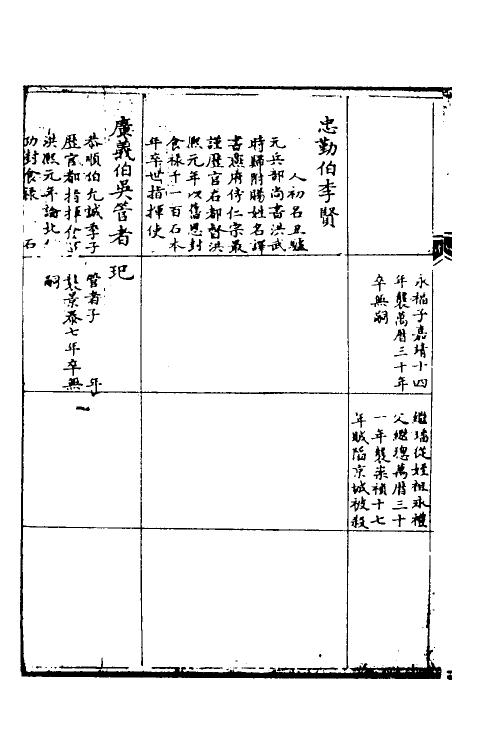 永福子嘉靖十四
年襲萬曆三十年
卒無嗣
繼璠從姪祖永禮
父繼璁萬曆三十
一年襲崇禎十七
年賊陷京城被殺
忠勤伯李賢
人初名丑驢
元兵部尚書洪武
時歸附賜姓名譯
書燕府侍仁宗最
謹歷官右都督洪
熙元年以舊恩封
食祿千一百石本
年卒世指揮使
廣義伯吳管者
恭順伯允誠季子
歷官都指揮
洪熙元年論北
功封食祿 石
玘
管者子 年
襲景泰七年卒無
嗣